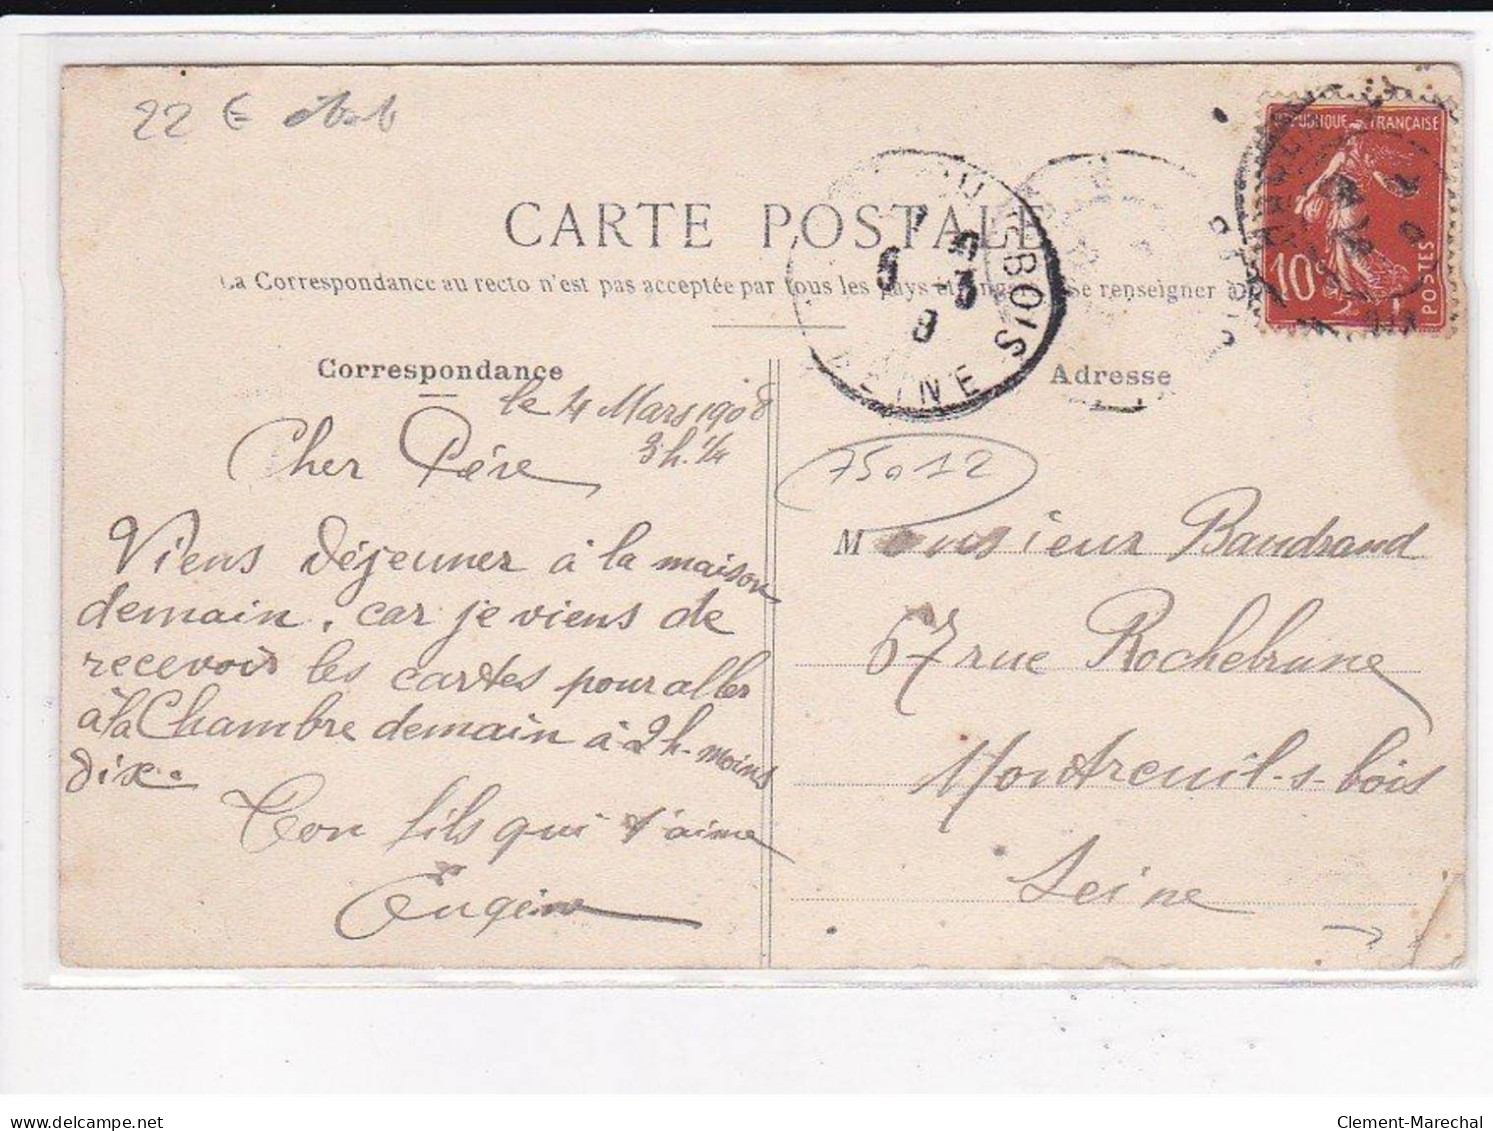 22 €
CARTE POSTALE
La Correspondance au recto n'est pas acceptée par tous les pays étrang Se renseigner à
RÉPUBLIQUE FRANÇAISE
10
POSTES
7
5 3
8
BOIS
SEINE
Correspondance
Adresse
le 4 Mars 1908
3h. 1/4
Cher Père
75012
Viens Déjeuner à la maison
demain, car je viens de
recevoir les cartes pour aller
à la Chambre demain à 2h. moins
dix.
Ton fils qui t'aime
Eugène
Monsieur Baudrand
67 rue Rochebrune
Montreuil-s-bois
Seine
delcampe.net
Clement-Marechal